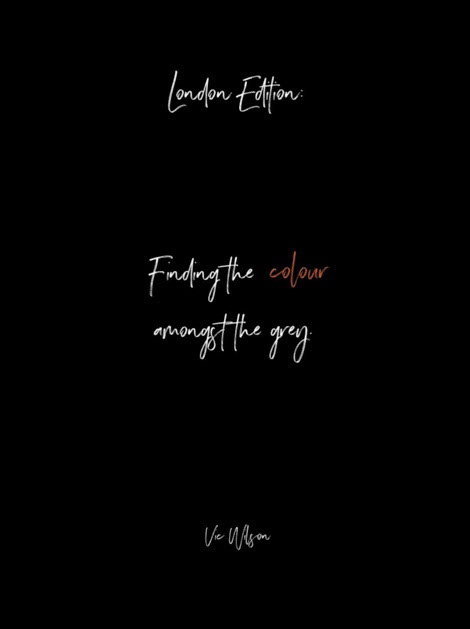 London Edition:
Finding the colour
amongst the grey.
Vic Wilson